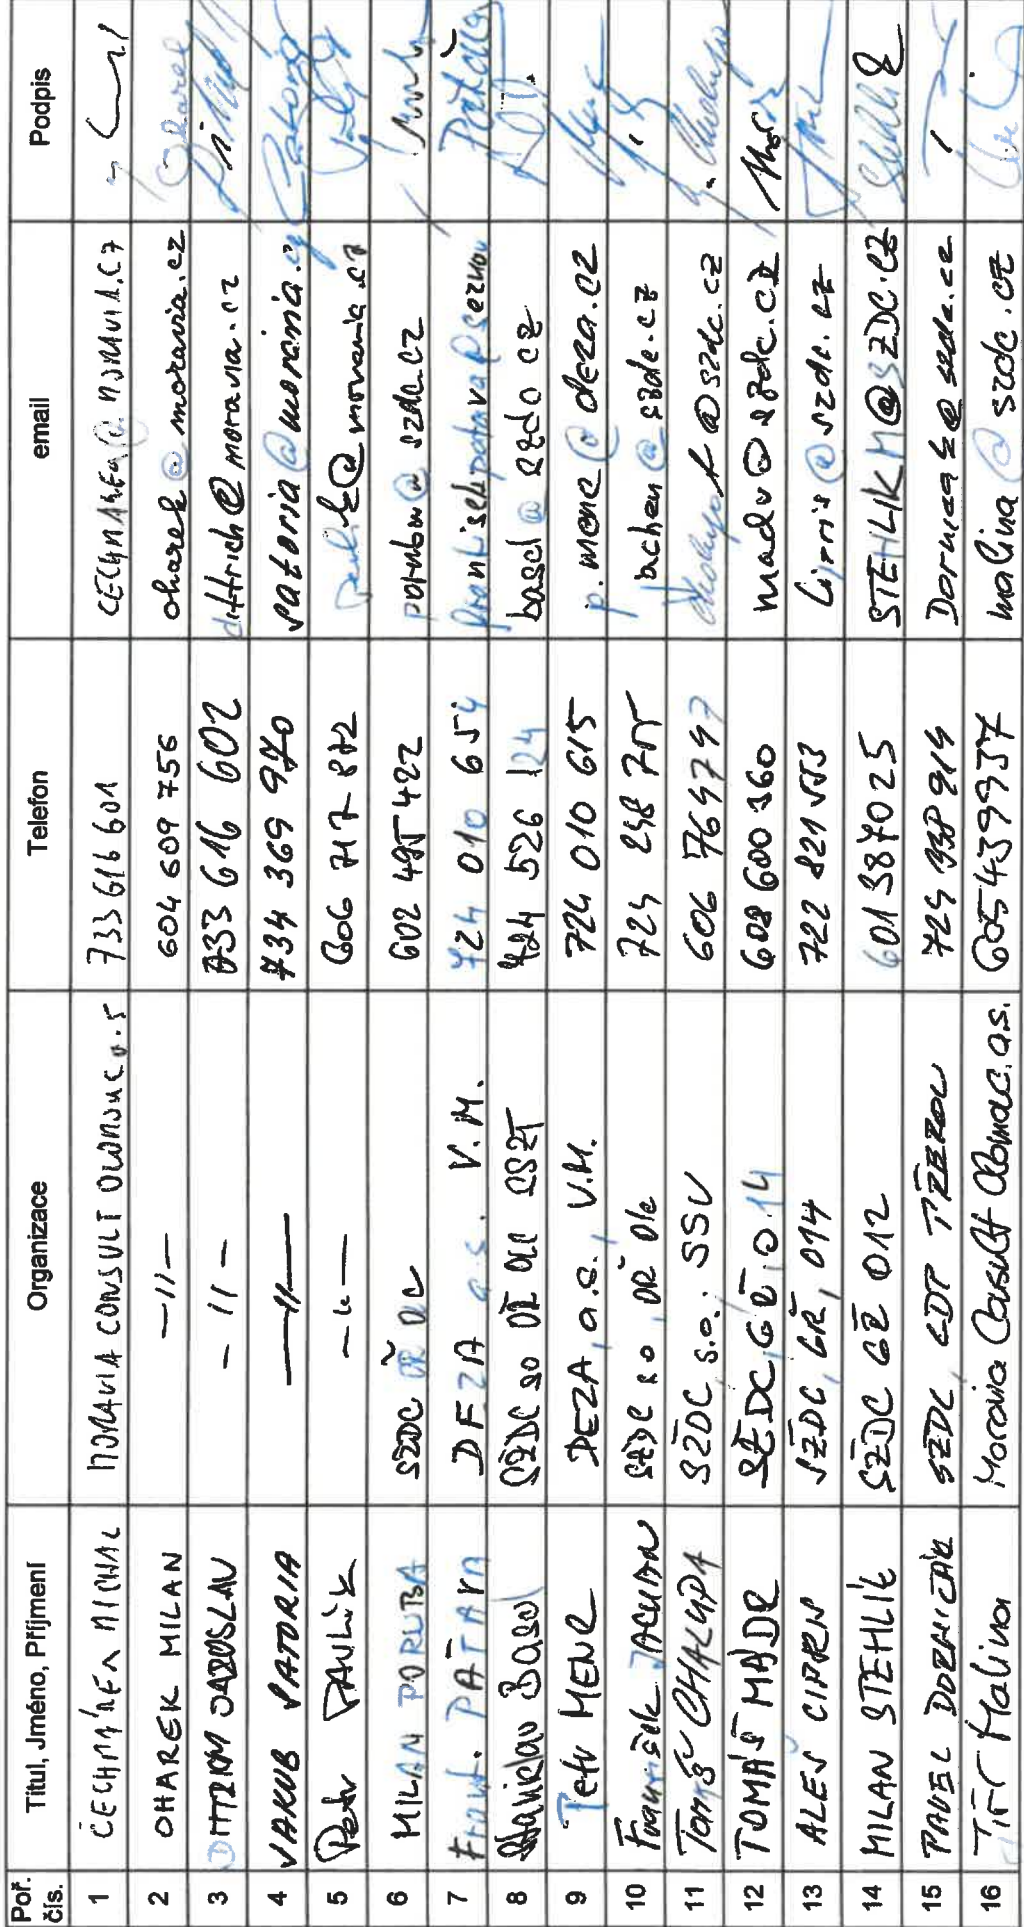 Poř. čís. Titul, Jméno, Příjmení Organizace Telefon email Podpis
1 ČECHMÁNEK MICHAL MORAVIA CONSULT OLOMOUC a.s 733 616 601 CECHMANEK@MORAVIA.CZ
2 OHAREK MILAN —//— 604 609 756 oharek@moravia.cz
3 DITTRICH JAROSLAV —//— 733 616 602 dittrich@moravia.cz
4 JAKUB SATORIA —//— 734 369 970 satoria@moravia.cz
5 Petr PAVLÍK —"— 606 717 872 pavlik@moravia.cz
6 MILAN PORUBA SŽDC OŘ OLC 602 495 422 poruba@szdc.cz
7 Frant. PÁTAVA DEZA a.s. V.M. 724 010 654 frantisekpatava@seznam
8 Stanislav Basel SŽDC so OŘ OLC SSZT 724 526 124 basel@szdc cz
9 Petr MENC DEZA, a.s., V.M. 724 010 615 p.menc@deza.cz
10 František JACHAN SŽDC s o, OŘ Olc 724 248 755 jachan@szdc.cz
11 Tomáš CHALUPA SŽDC, s.o., SSV 606 764797 chalupat@szdc.cz
12 TOMÁŠ MÁDR SŽDC, GŘ, O14 608 600 360 madr@szdc.cz
13 ALEŠ CIPRIS SŽDC, GŘ, O14 722 821 553 Cipris@szdc.cz
14 MILAN STEHLÍK SŽDC GŘ O12 601 387025 STEHLIKM@SZDC.CZ
15 PAVEL SŽDC, CDP PŘEROV 724 938 914
16 Jiří Malina Moravia Consult Olomouc a.s. 605439937 malina@szdc.cz